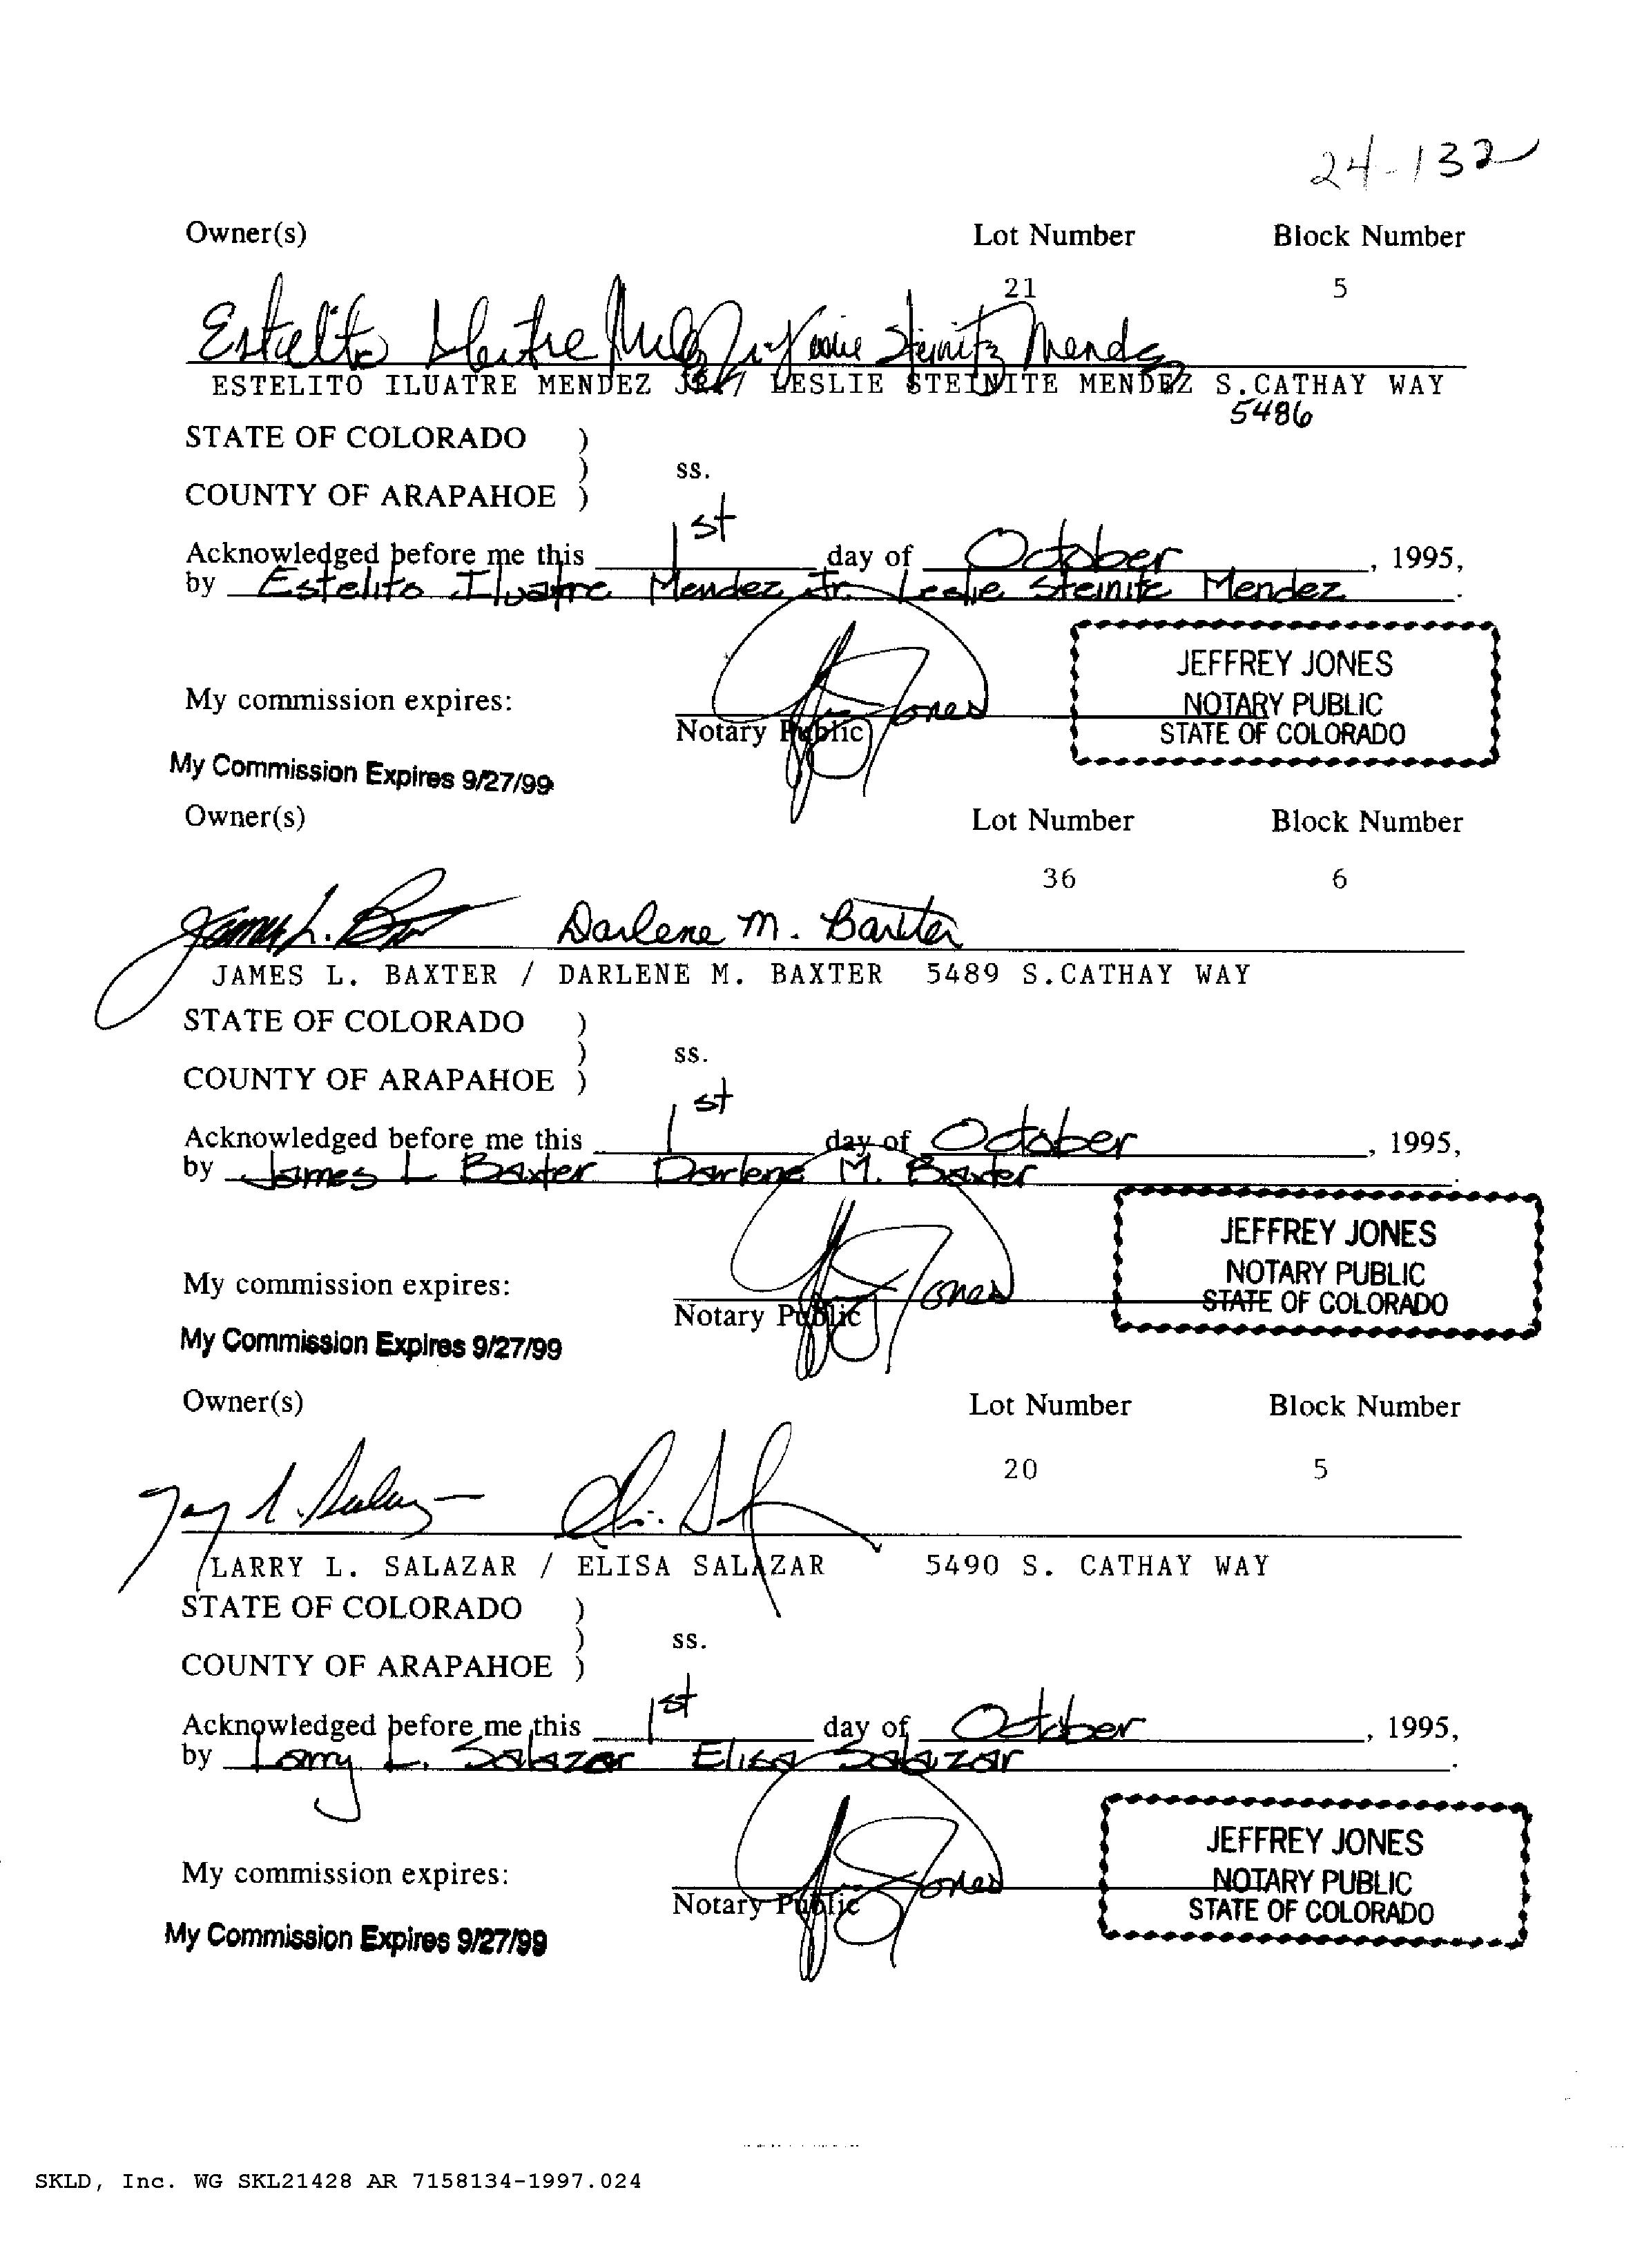 24-132
Owner(s) Lot Number Block Number
21 5
Estelito Mendez Jr Leslie Steinitz Mendez
ESTELITO ILUATRE MENDEZ LESLIE STEINITE MENDEZ S.CATHAY WAY
5486
STATE OF COLORADO )
) ss.
COUNTY OF ARAPAHOE )
Acknowledged before me this 1st day of October, 1995,
by Estelito Iluatre Mendez Jr. Leslie Steinite Mendez.
JEFFREY JONES
My commission expires: Jones NOTARY PUBLIC
Notary Public STATE OF COLORADO
My Commission Expires 9/27/99
Owner(s) Lot Number Block Number
36 6
James L. Baxter Darlene M. Baxter
JAMES L. BAXTER / DARLENE M. BAXTER 5489 S.CATHAY WAY
STATE OF COLORADO )
) ss.
COUNTY OF ARAPAHOE )
Acknowledged before me this 1st day of October, 1995,
by James L Baxter Darlene M. Baxter.
JEFFREY JONES
My commission expires: Jones NOTARY PUBLIC
Notary Public STATE OF COLORADO
My Commission Expires 9/27/99
Owner(s) Lot Number Block Number
20 5
LARRY L. SALAZAR / ELISA SALAZAR 5490 S. CATHAY WAY
STATE OF COLORADO )
) ss.
COUNTY OF ARAPAHOE )
Acknowledged before me this 1st day of October, 1995,
by Larry L. Salazar Elisa Salazar.
JEFFREY JONES
My commission expires: Jones NOTARY PUBLIC
Notary Public STATE OF COLORADO
My Commission Expires 9/27/99
SKLD, Inc. WG SKL21428 AR 7158134-1997.024